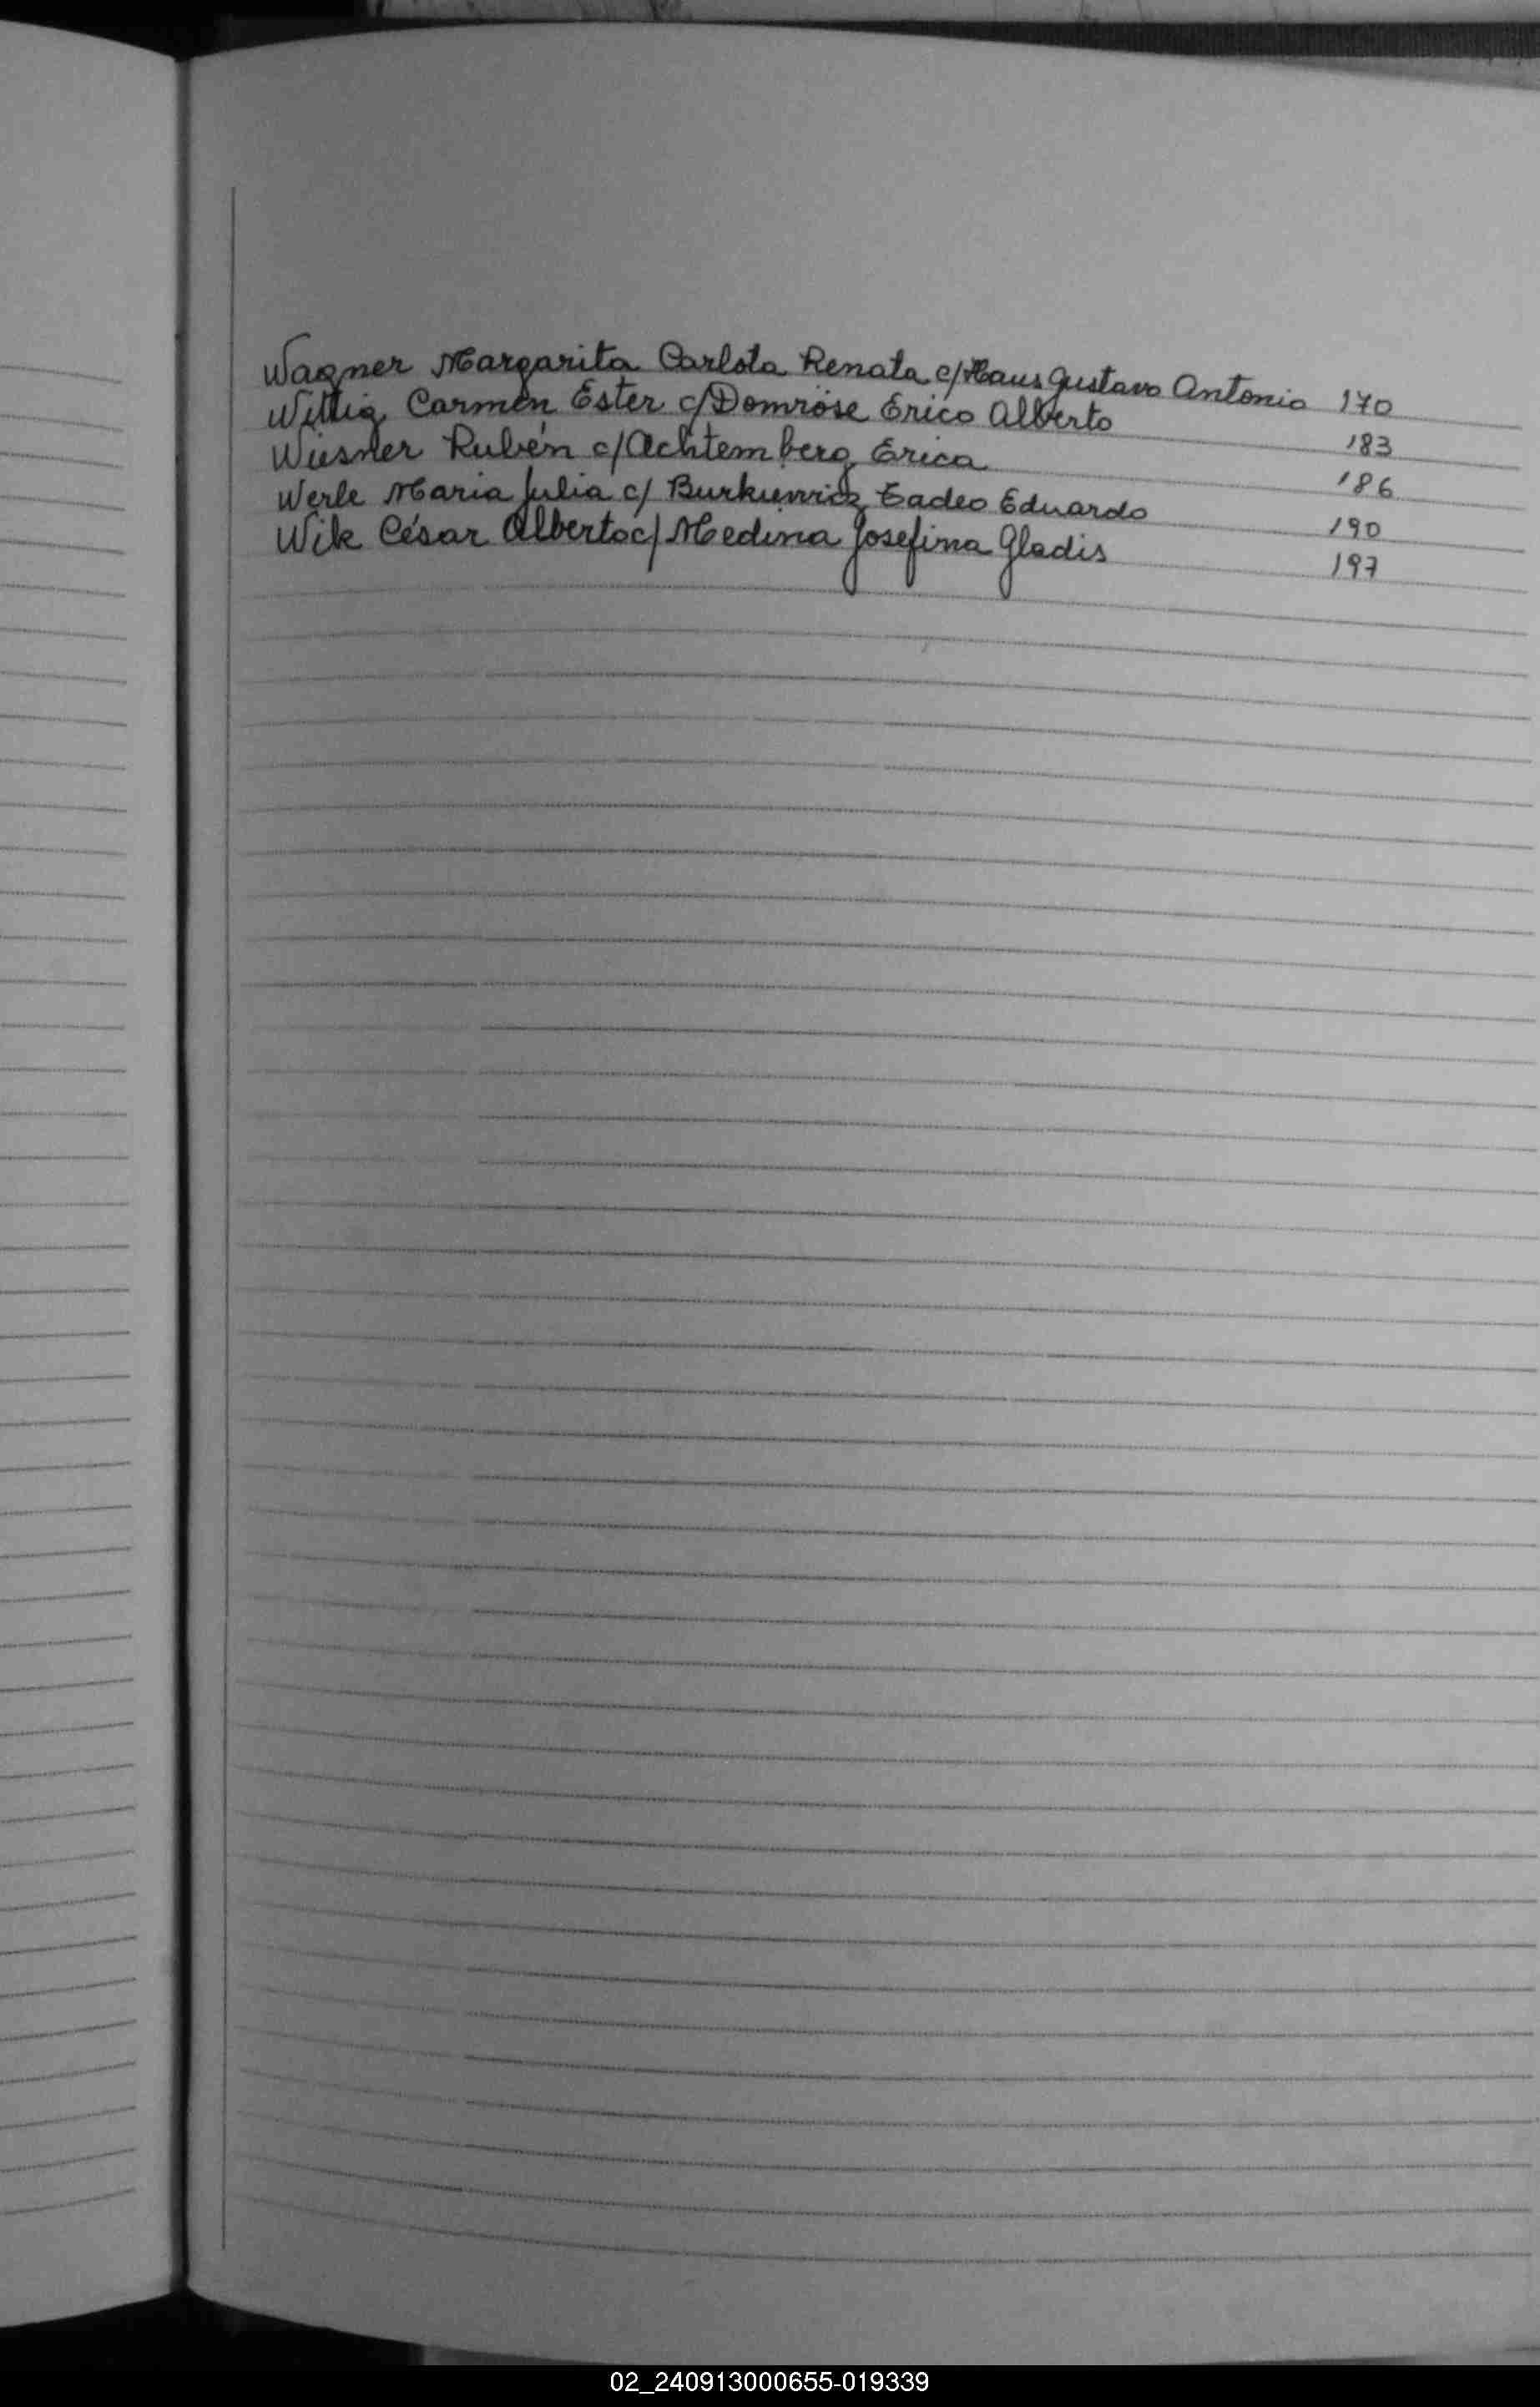 Wagner Margarita Carlota Renata c/ Haus Gustavo Antonio 170
Wittig Carmen Ester c/ Domröse Erico Alberto 183
Wiesner Rubén c/ Achtemberg Erica 186
Werle Maria Julia c/ Burkiewicz Tadeo Eduardo 190
Wik César Alberto c/ Medina Josefina Gladis 197
02_240913000655-019339